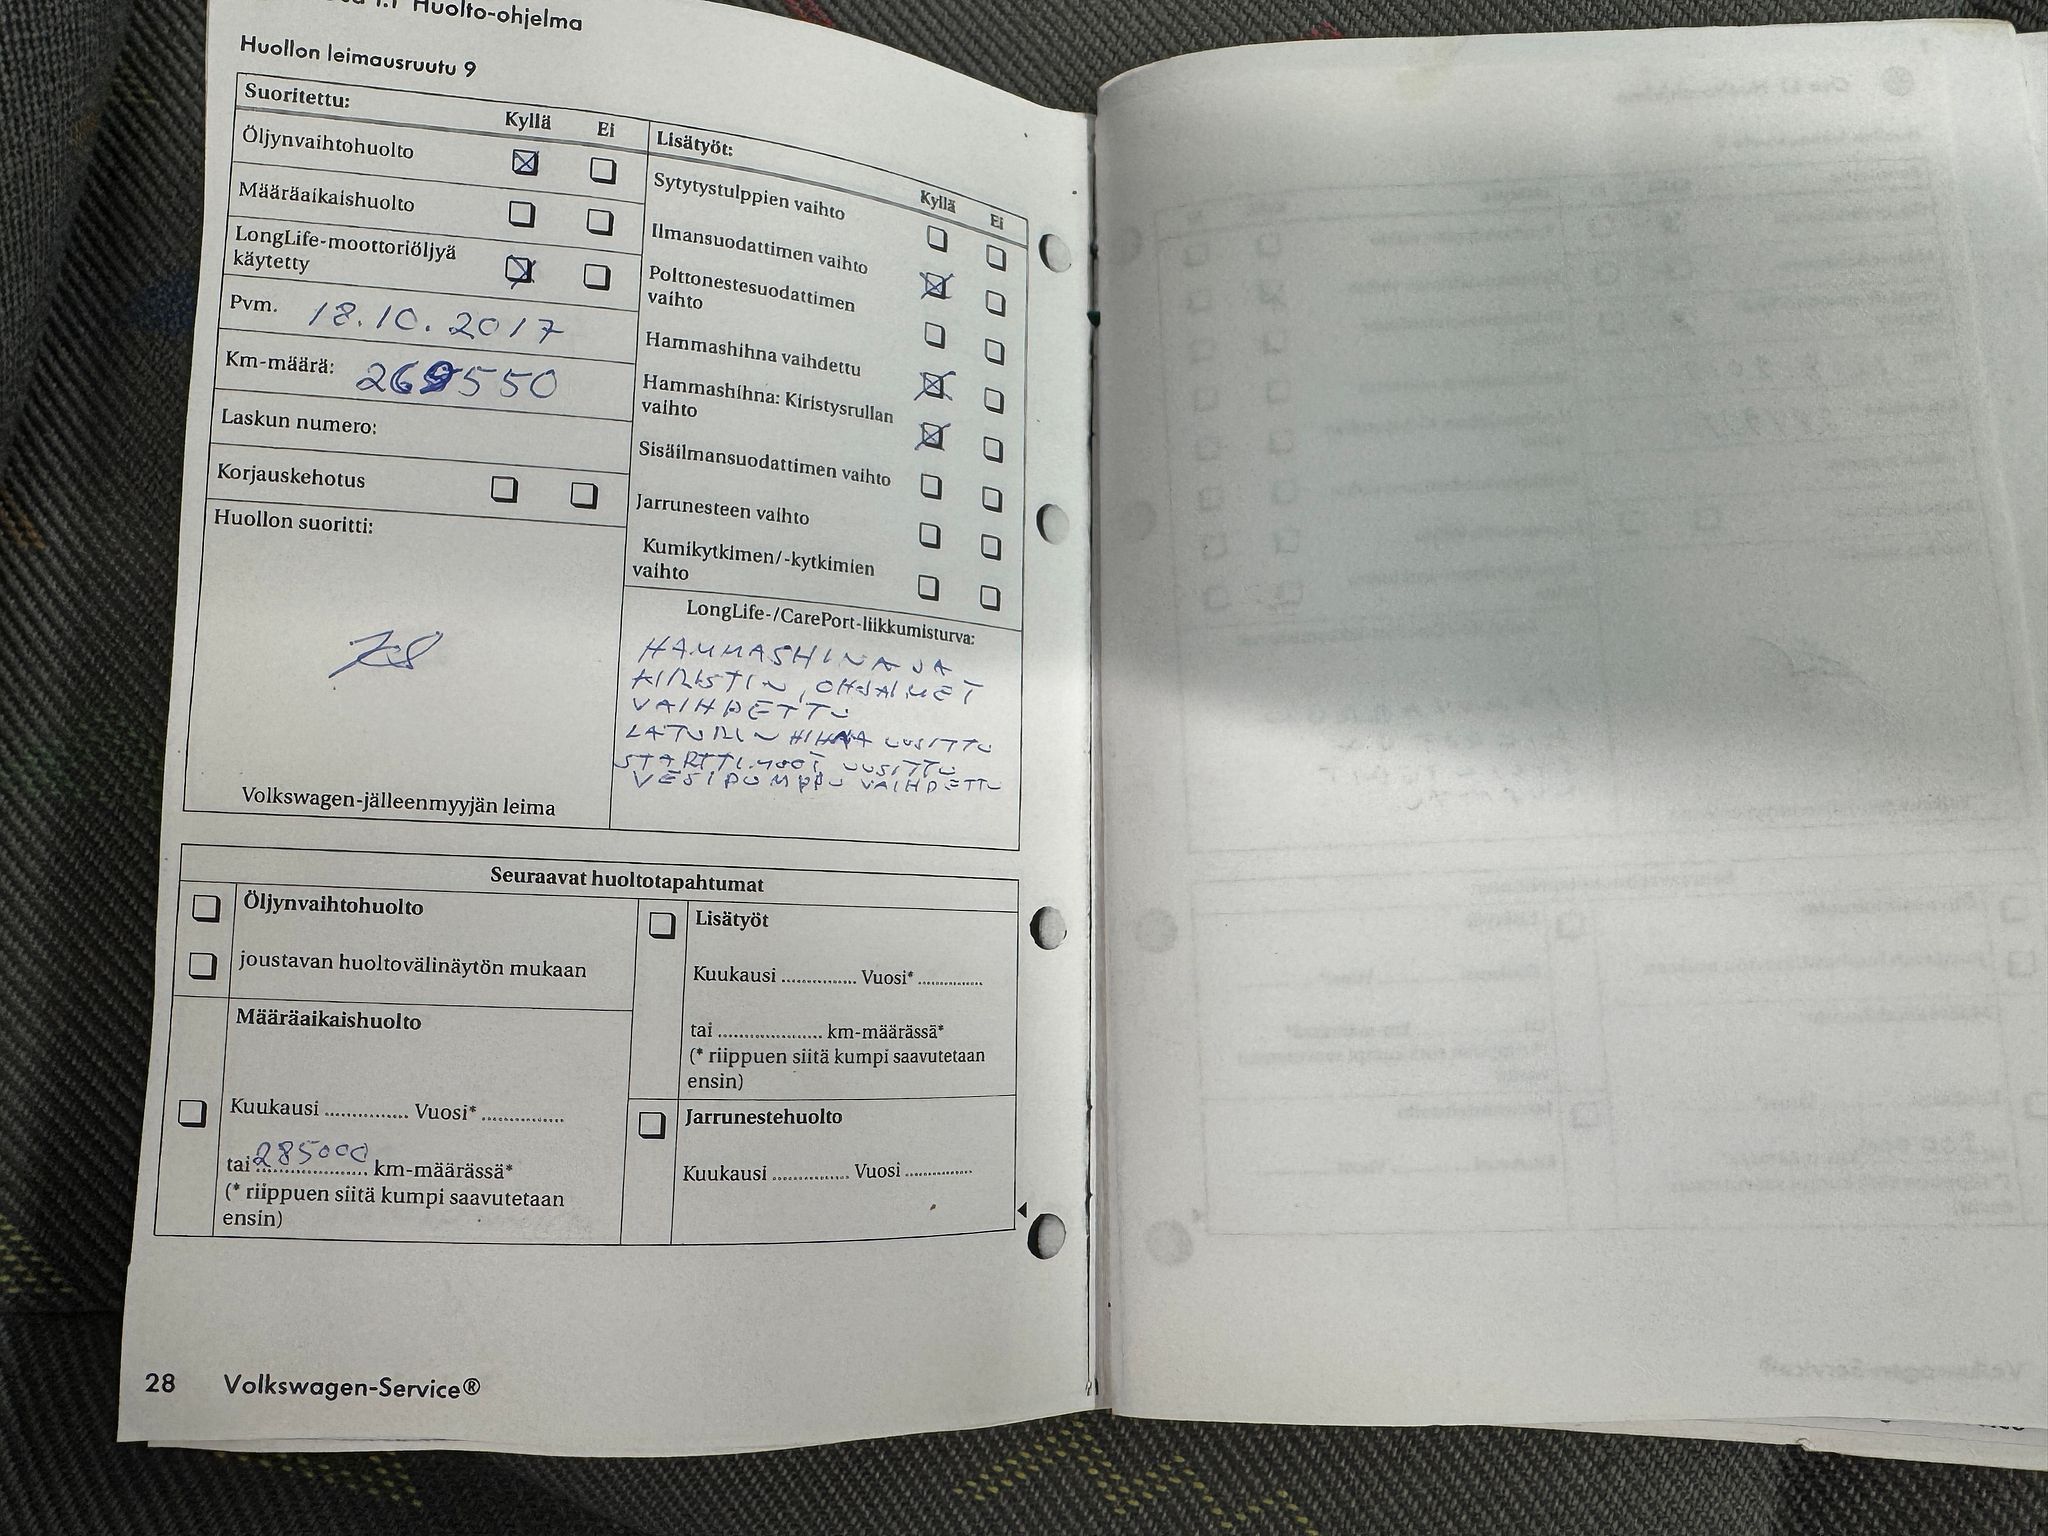 Huolto-ohjelma
Huollon leimausruutu 9
Suoritettu:
Kyllä Ei
Öljynvaihtohuolto
Määräaikaishuolto
LongLife-moottoriöljyä
käytetty
Pvm. 18.10.2017
Km-määrä: 269550
Laskun numero:
Korjauskehotus
Huollon suoritti:
Volkswagen-jälleenmyyjän leima
Lisätyöt:
Kyllä Ei
Sytytystulppien vaihto
Ilmansuodattimen vaihto
Polttonestesuodattimen
vaihto
Hammashihna vaihdettu
Hammashihna: Kiristysrullan
vaihto
Sisäilmansuodattimen vaihto
Jarrunesteen vaihto
Kumikytkimen/-kytkimien
vaihto
LongLife-/CarePort-liikkumisturva:
HAMMASHINA JA
KIRISTIN, OHJAIMET
VAIHDETTU
LATURIN HIHNA UUSITTU
STARTTIMOOT UUSITTU
VESIPUMPPU VAIHDETTU
Seuraavat huoltotapahtumat
Öljynvaihtohuolto
joustavan huoltovälinäytön mukaan
Määräaikaishuolto
Kuukausi .............. Vuosi* ..............
tai 285000 km-määrässä*
(* riippuen siitä kumpi saavutetaan
ensin)
Lisätyöt
Kuukausi ............ Vuosi* ............
tai .................. km-määrässä*
(* riippuen siitä kumpi saavutetaan
ensin)
Jarrunestehuolto
Kuukausi ............ Vuosi ............
28 Volkswagen-Service®